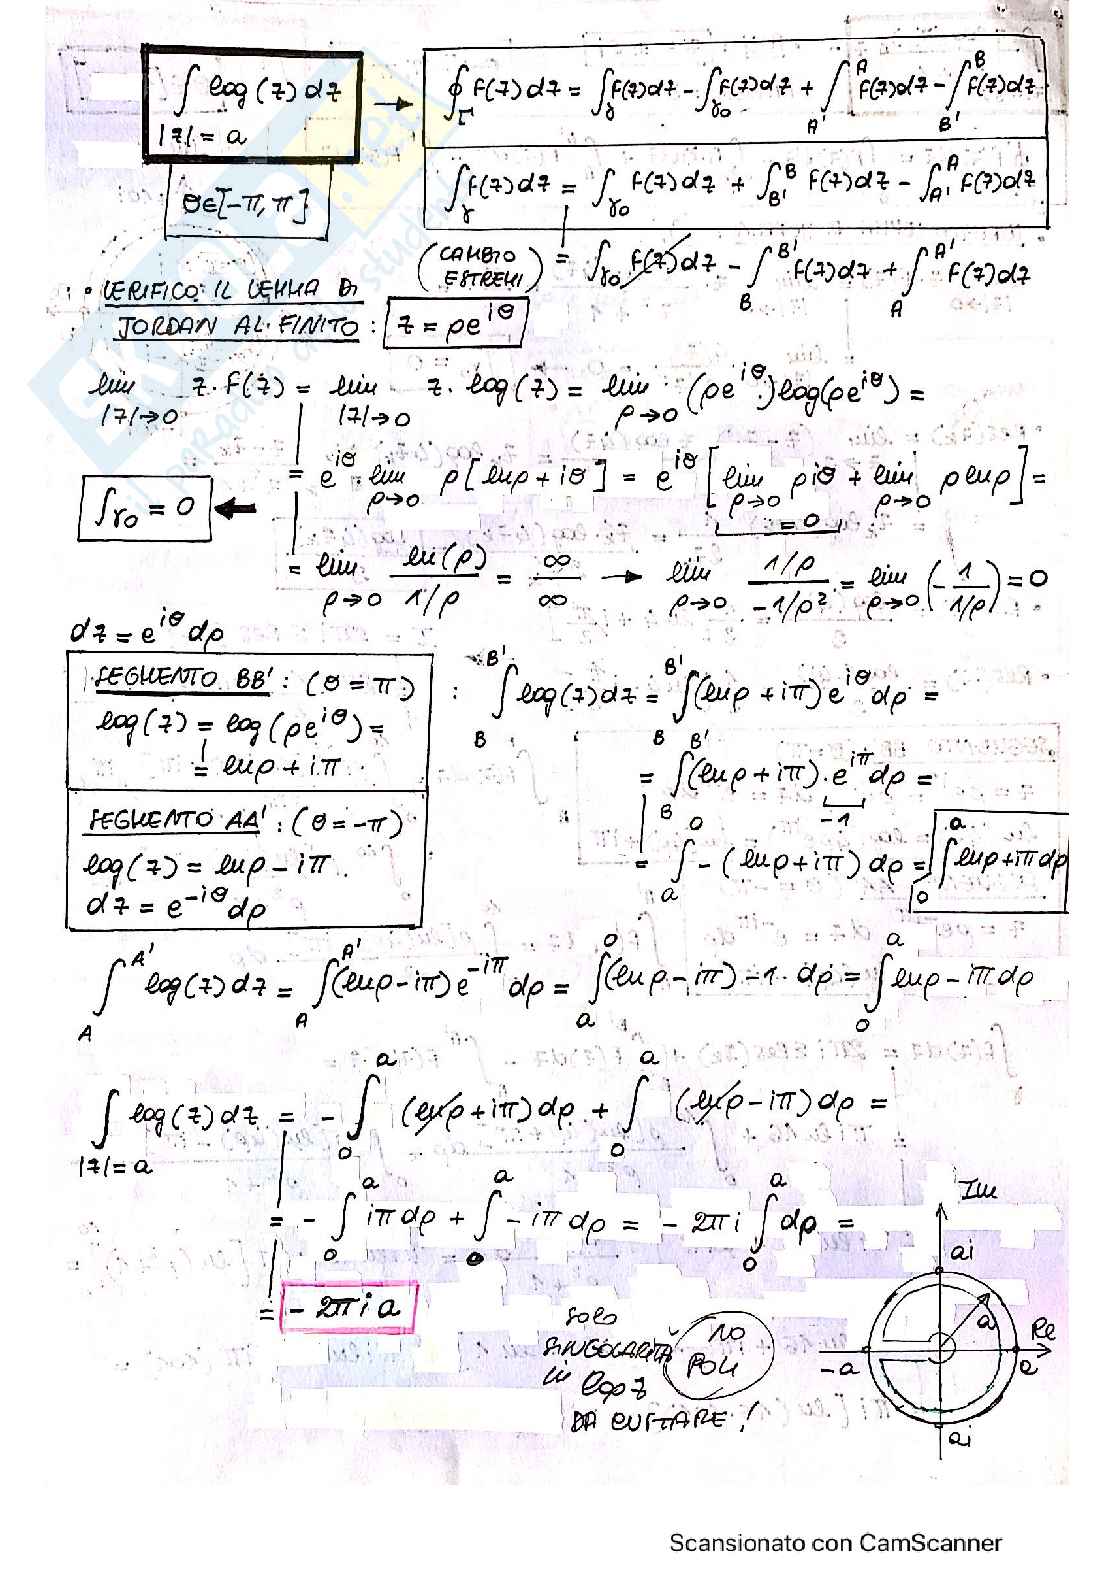 ∫ log(z) dz → ∮ f(z)dz = ∫γ f(z)dz - ∫γ₀ f(z)dz + ∫ A f(z)dz - ∫ B f(z)dz
|z| = a Γ A' B'
θ∈[-π, π] ∫γ f(z)dz = ∫γ₀ f(z)dz + ∫B'^B f(z)dz - ∫A'^A f(z)dz
(CAMBIO ESTREMI) = ∫γ₀ f(z)dz - ∫B^B' f(z)dz + ∫A^A' f(z)dz
• VERIFICO: IL LEMMA DI
JORDAN AL FINITO: z = ρe^iθ
lim |z|→0 z·f(z) = lim |z|→0 z·log(z) = lim ρ→0 (ρe^iθ)log(ρe^iθ) =
= e^iθ lim ρ→0 ρ[lnρ + iθ] = e^iθ [lim ρ→0 ρiθ + lim ρ→0 ρ lnρ] =
= 0
∫γ₀ = 0 ←
= lim ρ→0 ln(ρ)/1/ρ = ∞/∞ → lim ρ→0 1/ρ / -1/ρ² = lim ρ→0 (-1/1/ρ) = 0
dz = e^iθ dρ
SEGMENTO BB': (θ = π) : ∫B^B' log(z)dz = ∫B^B' (lnρ + iπ) e^iθ dρ =
log(z) = log(ρe^iθ) =
= lnρ + iπ
= ∫B^B' (lnρ + iπ)·e^iπ dρ =
-1
SEGMENTO AA': (θ = -π)
log(z) = lnρ - iπ
dz = e^-iθ dρ
= ∫a^0 - (lnρ + iπ) dρ = ∫0^a lnρ + iπ dρ
∫A^A' log(z)dz = ∫A^A' (lnρ - iπ) e^-iπ dρ = ∫a^0 (lnρ - iπ) -1· dρ = ∫0^a lnρ - iπ dρ
∫|z|=a log(z)dz = - ∫0^a (lnρ + iπ)dρ + ∫0^a (lnρ - iπ)dρ =
= - ∫0^a iπ dρ + ∫0^a - iπ dρ = -2πi ∫0^a dρ =
= -2πi a
SOLO
SINGOLARITÀ
in log z
DA EVITARE!
NO
POLI
Im
ai
a
Re
-a
a
ai
Scansionato con CamScanner